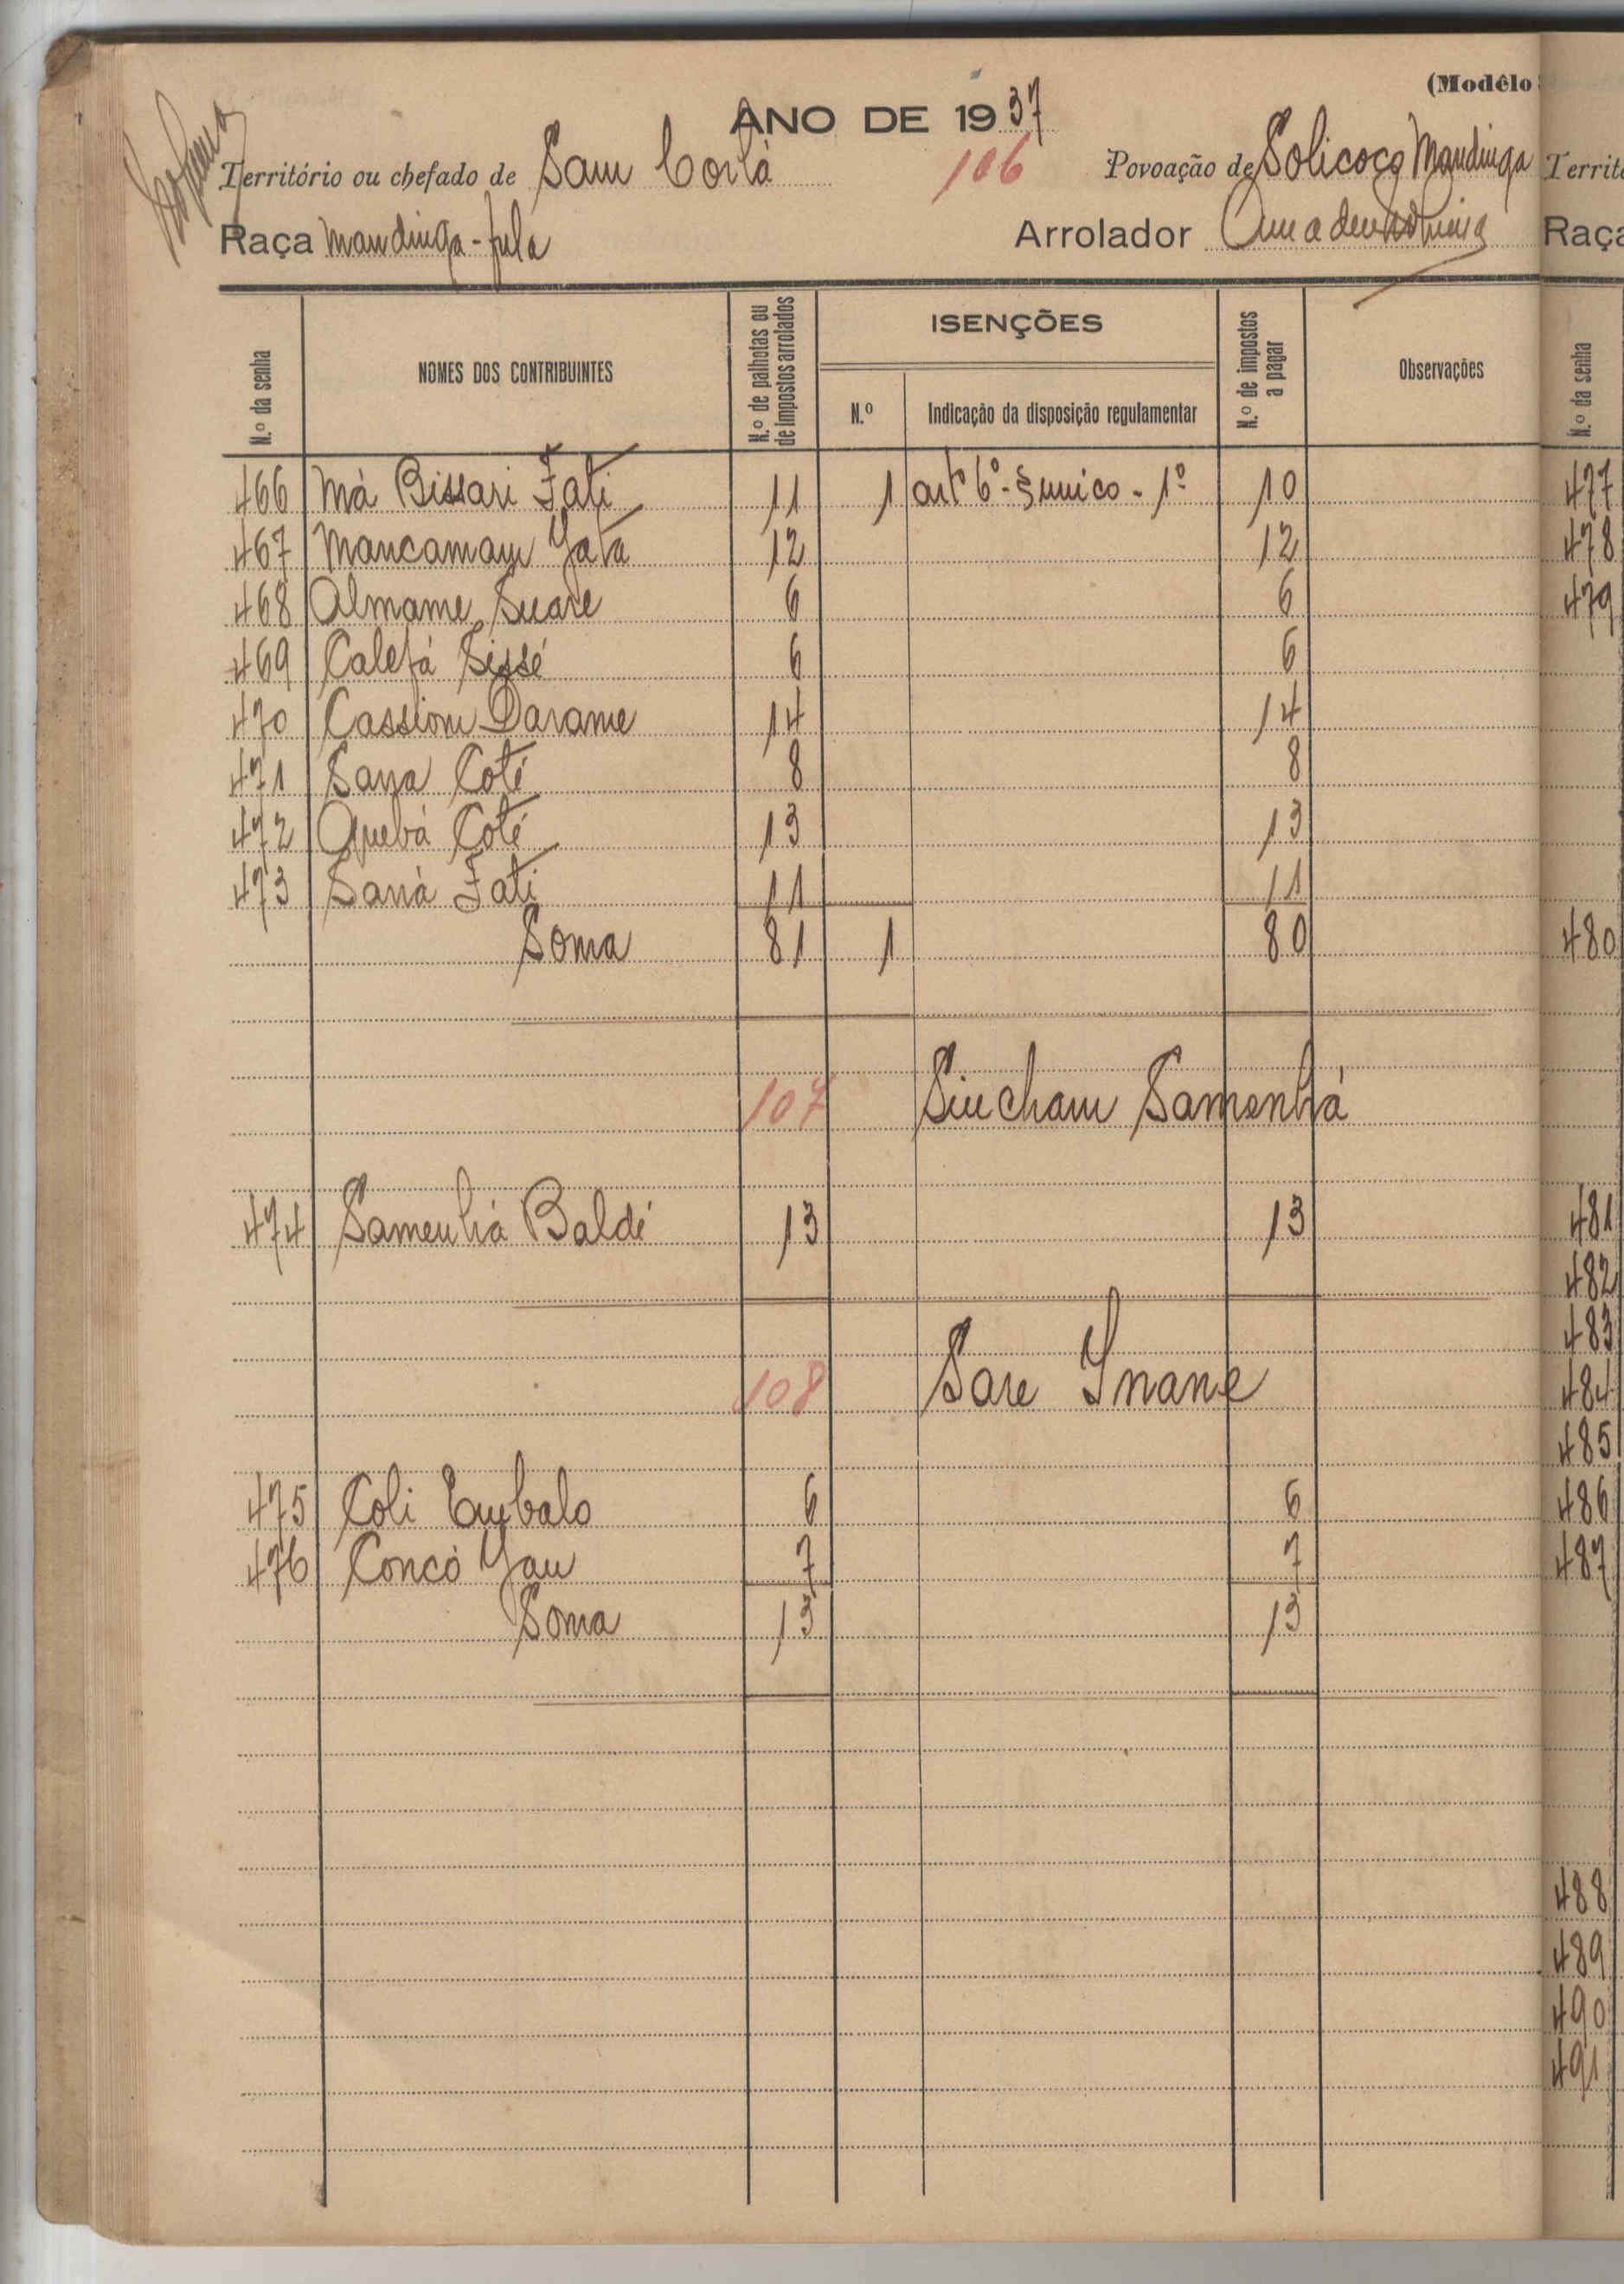 (Modêlo
ANO DE 1937
Território ou chefado de Sam Corlà 106 Povoação de Solicoco Mandinga
Raça Mandinga-fula Arrolador Amadeu
N.º da senha NOMES DOS CONTRIBUINTES N.º de palhotas ou de impostos arrolados ISENÇÕES N.º Indicação da disposição regulamentar N.º de impostos a pagar Observações
466 Má Bissari Fati 11 1 art 6º-§ unico-1º 10
467 Mancamam Jata 12 12
468 Almame Suare 6 6
469 Calefá Sissé 6 6
470 Cassiom Darame 14 14
471 Sana Coté 8 8
472 Quebá Coté 13 13
473 Saná Fati 11 11
Soma 81 1 80
107 Sincham Samenhá
474 Samenhá Baldé 13 13
108 Sare Ynane
475 Coli Embalo 6 6
476 Concó Yau 7 7
Soma 13 13
Territ
Raça
N.º da senha
477
478
479
480
481
482
483
484
485
486
487
488
489
490
491